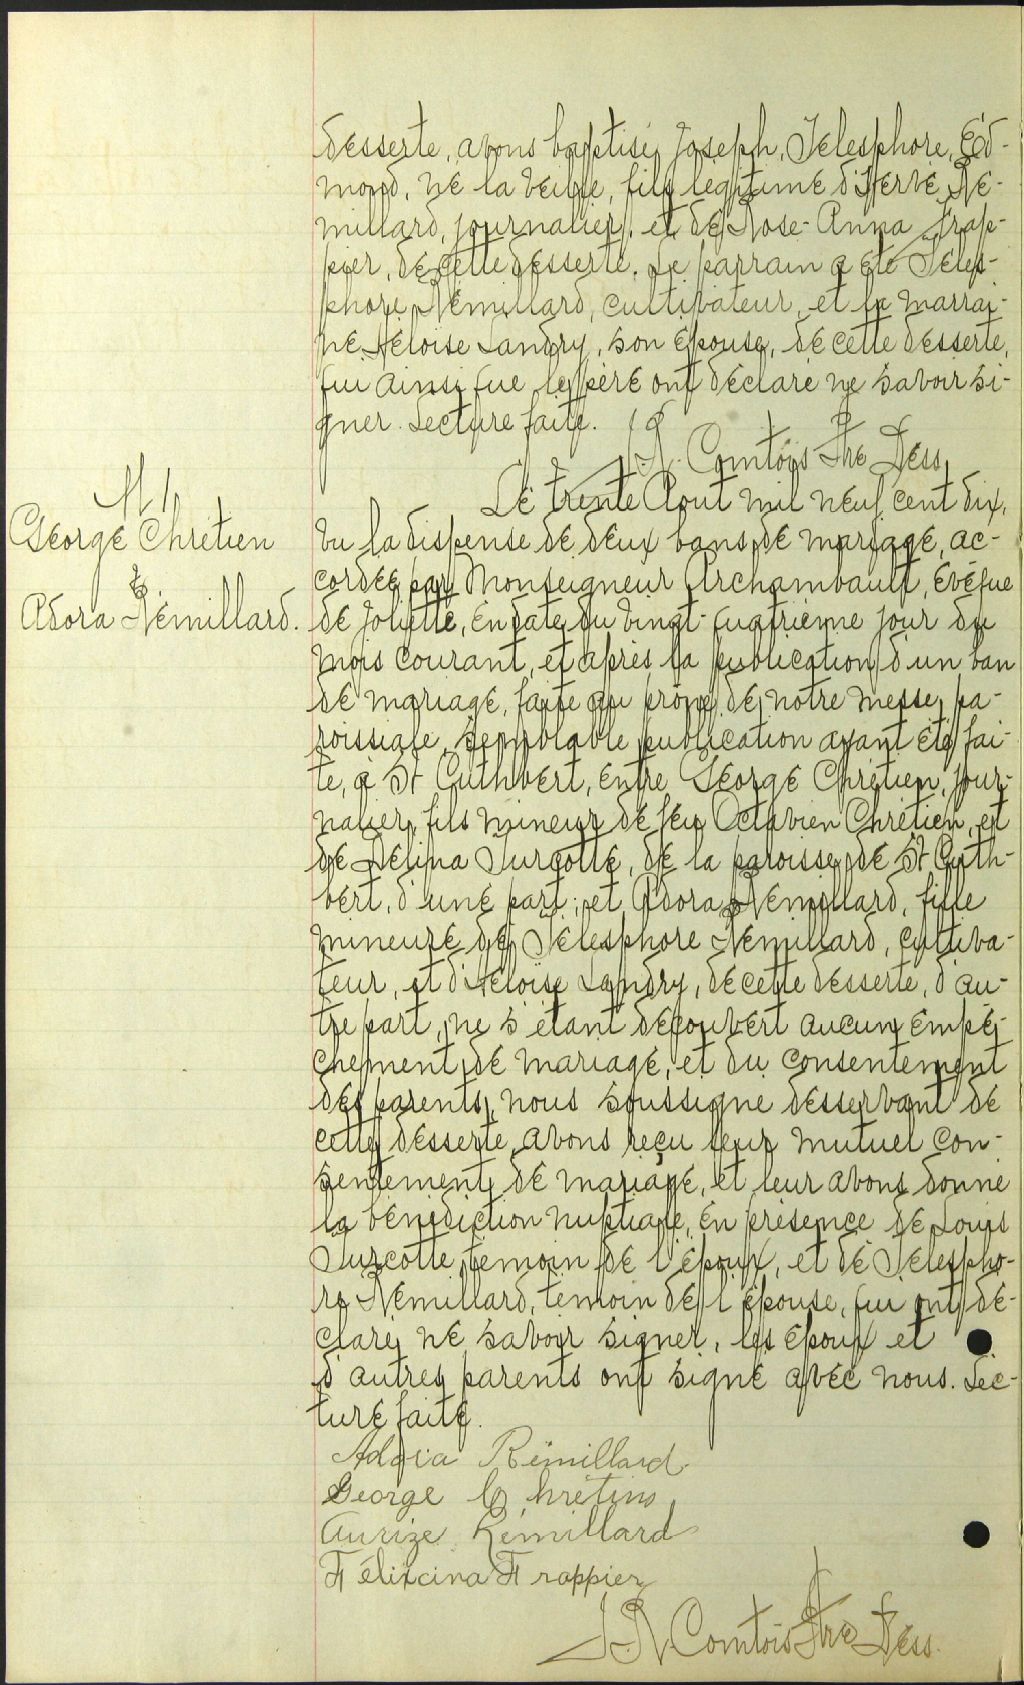 desserte, avons baptisé Joseph, Télesphore, Ed-
mond, né la veille, fils légitime d'Hervé Ré-
millard, journalier, et de Rose-Anna Frap-
pier, de cette desserte. Le parrain a été Téles-
phore Rémillard, cultivateur, et la marrai-
ne Héloise Landry, son épouse, de cette desserte,
qui ainsi que le père ont déclaré ne savoir si-
gner. Lecture faite. J. R. Comtois Ptre Dess.
M 1
George Chrétien
&
Adora Rémillard.
Le trente Aout mil neuf cent dix,
vu la dispense de deux bans de mariage, ac-
cordée par Monseigneur Archambault, évêque
de Joliette, en date du vingt-quatrième jour du
mois courant, et après la publication d'un ban
de mariage, faite au prône de notre messe pa-
roissiale, semblable publication ayant été fai-
te, à St Cuthbert, entre George Chrétien, jour-
nalier, fils mineur de feu Octavien Chrétien, et
de Délina Turcotte, de la paroisse de St Cuth-
bert, d'une part; et Adora Rémillard, fille
mineure de Télesphore Rémillard, cultiva-
teur, et d'Héloise Landry, de cette desserte, d'au-
tre part, ne s'étant découvert aucun empê-
chement de mariage, et du consentement
des parents, nous soussigné desservant de
cette desserte, avons reçu leur mutuel con-
sentement de mariage, et leur avons donné
la bénédiction nuptiale, en présence de Louis
Turcotte témoin de l'époux, et de Télespho-
re Rémillard, témoin de l'épouse, qui ont dé-
claré ne savoir signer, les époux et
d'autres parents ont signé avec nous. Lec-
ture faite.
Adora Rémillard
George Chrétins
Aurize Rémillard
Félixcina Frappier
J. R. Comtois Ptre Dess.